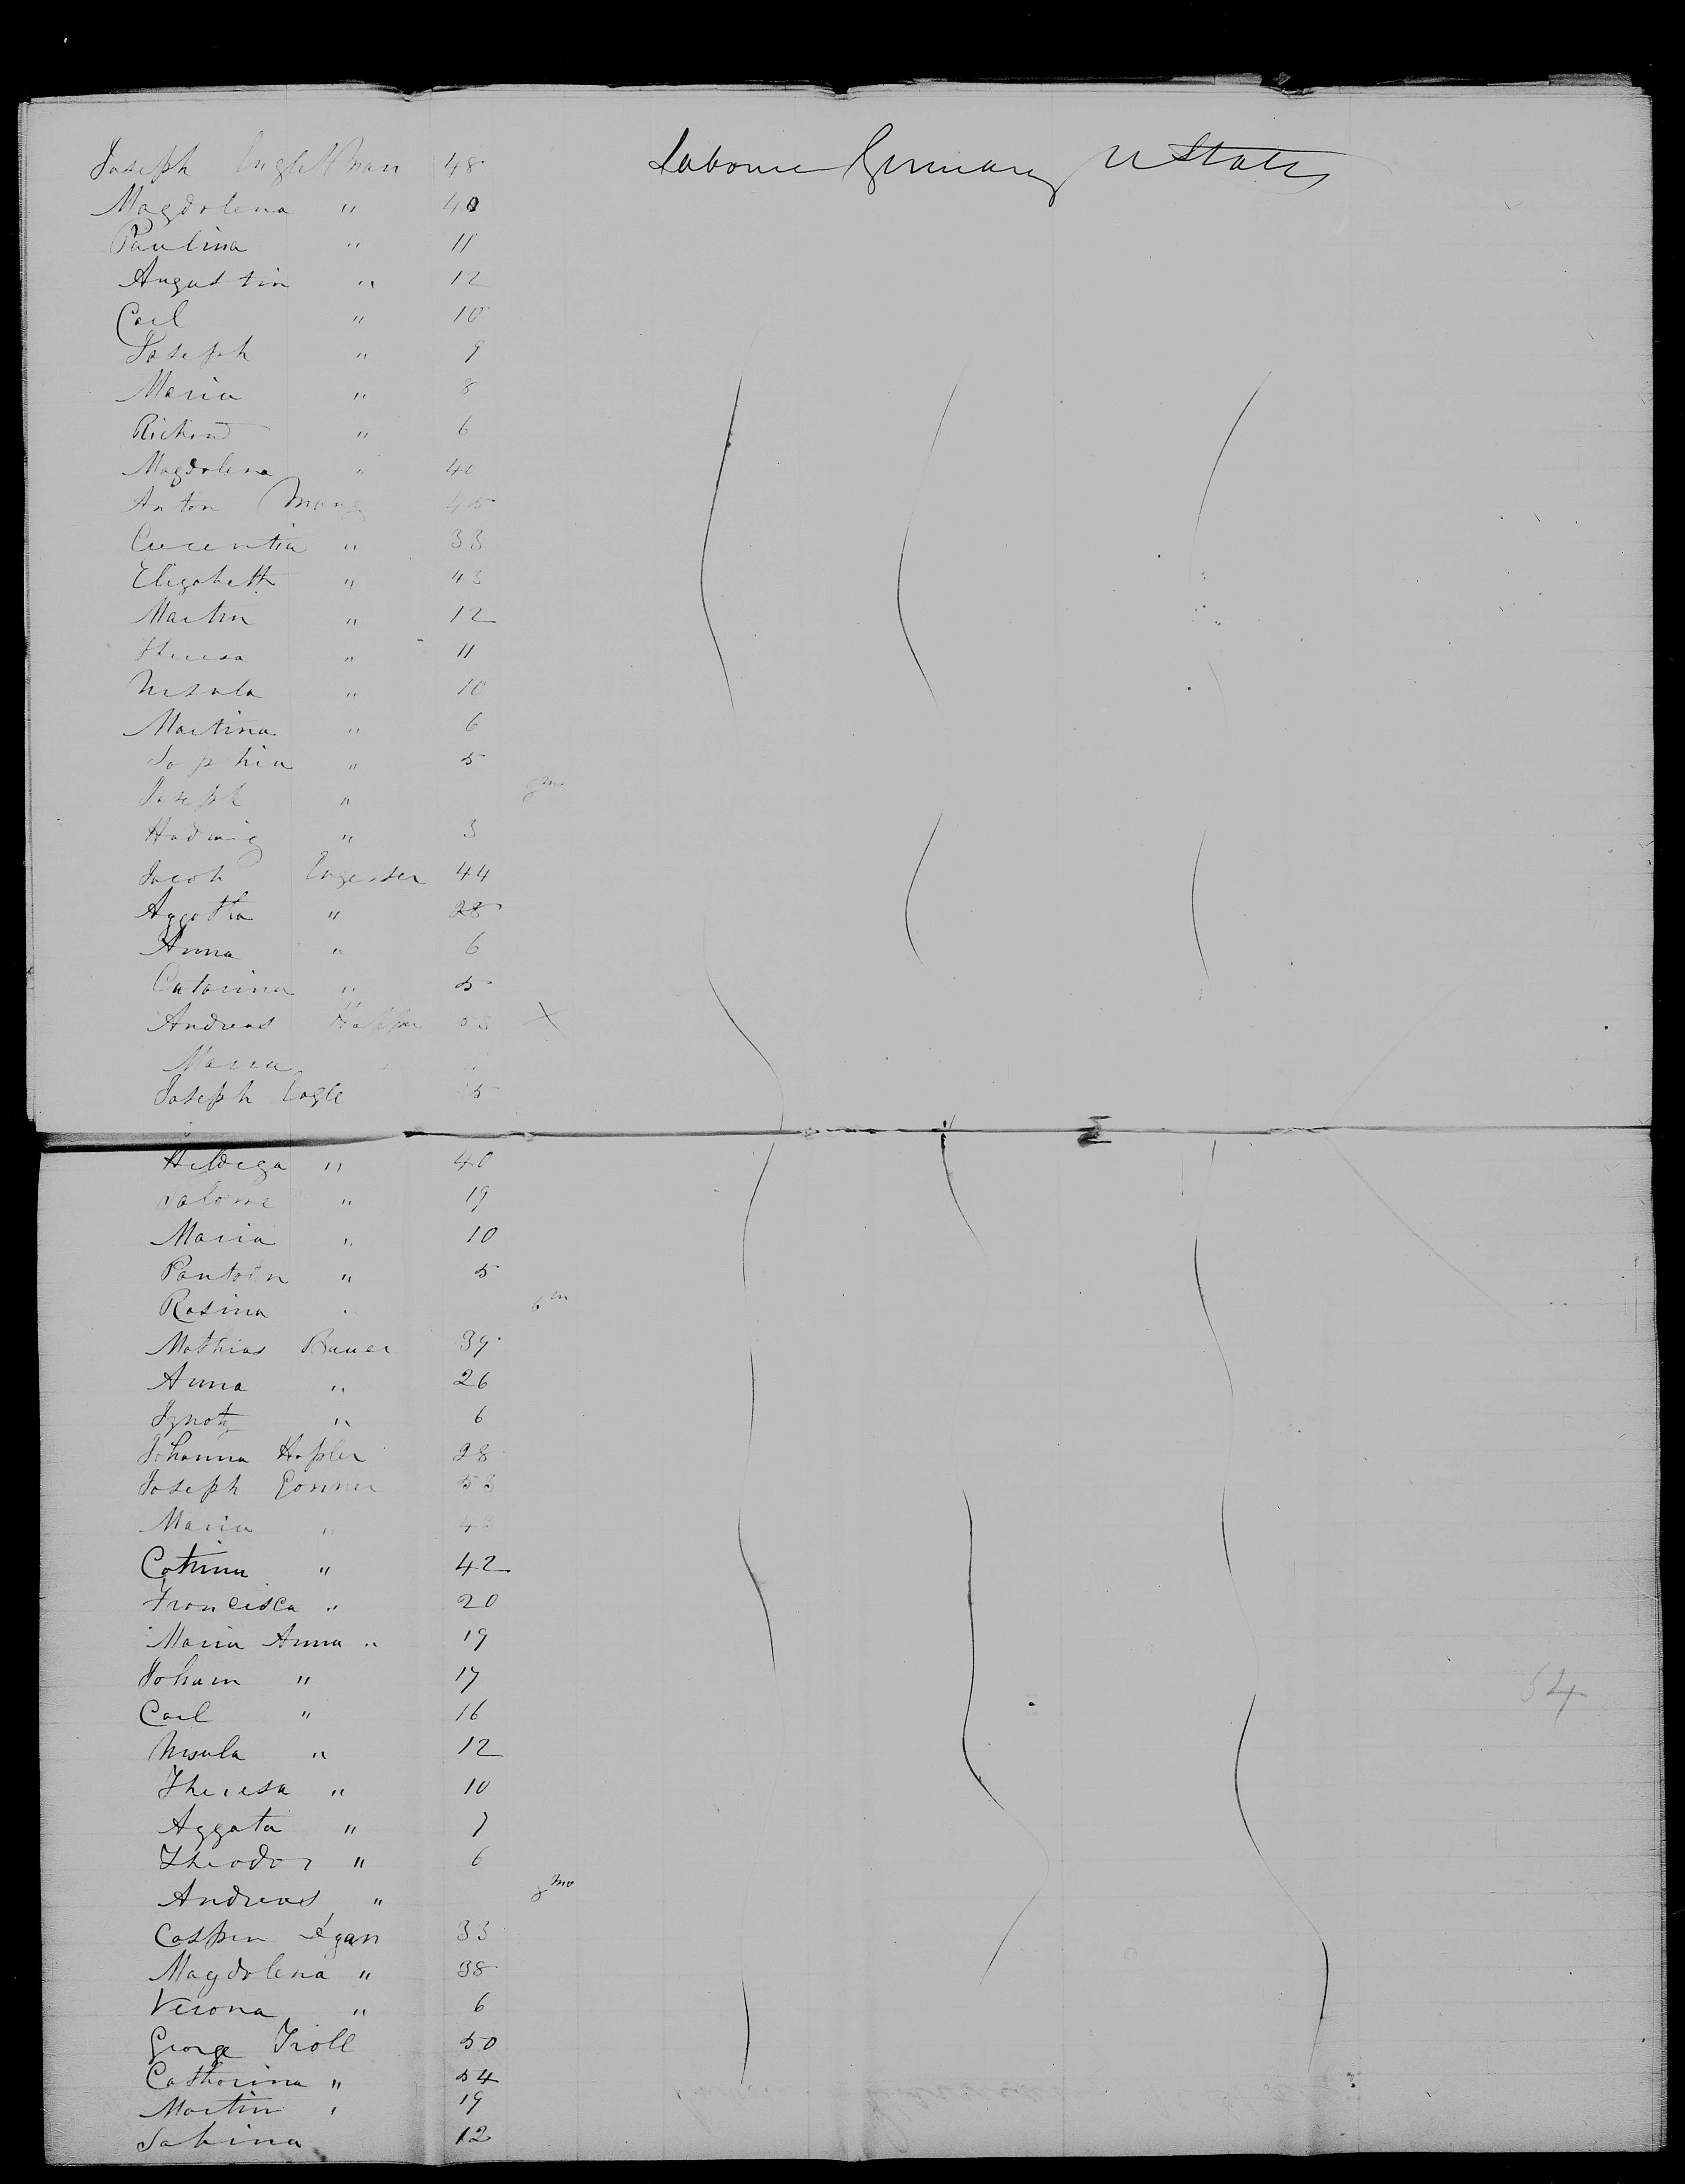 Joseph Englethman 48 Labourer Germany U States
Magdolena " 40
Paulina " 11
Augustin " 12
Carl " 10
Joseph " 9
Maria " 8
Richard " 6
Magdolena " 40
Anton Mang 45
Crecentia " 33
Elizabeth " 43
Martin " 12
Theresa " 11
Ursula " 10
Martina " 6
Sophia " 5
Joseph " 8m
Hadwig " 3
Jacob Engesser 44
Aggotha " 28
Anna " 6
Catarina " 5
Andreas 53 X
Maria
Joseph Engle
Hildega " 40
Salome " 19
Maria " 10
" 5
Rosina " 6m
Mathias Bauer 39
Anna " 26
Ignotz " 6
Johanna Hossler 28
Joseph Gonner 53
Maria " 43
Cotrina " 42
Froncisca " 20
Maria Anna " 19
Johann " 17
Carl " 16
Ursula " 12
Theresa " 10
Aggata " 7
Theodor " 6
Andreas " 8mo
Casper Egan 33
Magdolena " 38
Verona " 6
George Troll 50
Cathorina " 54
54
Martin " 19
Sabina 12